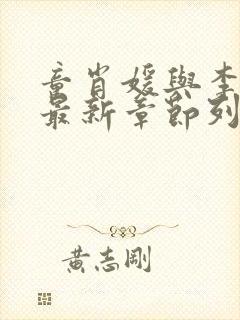 童肖媛與李
最新章節列
黃志剛